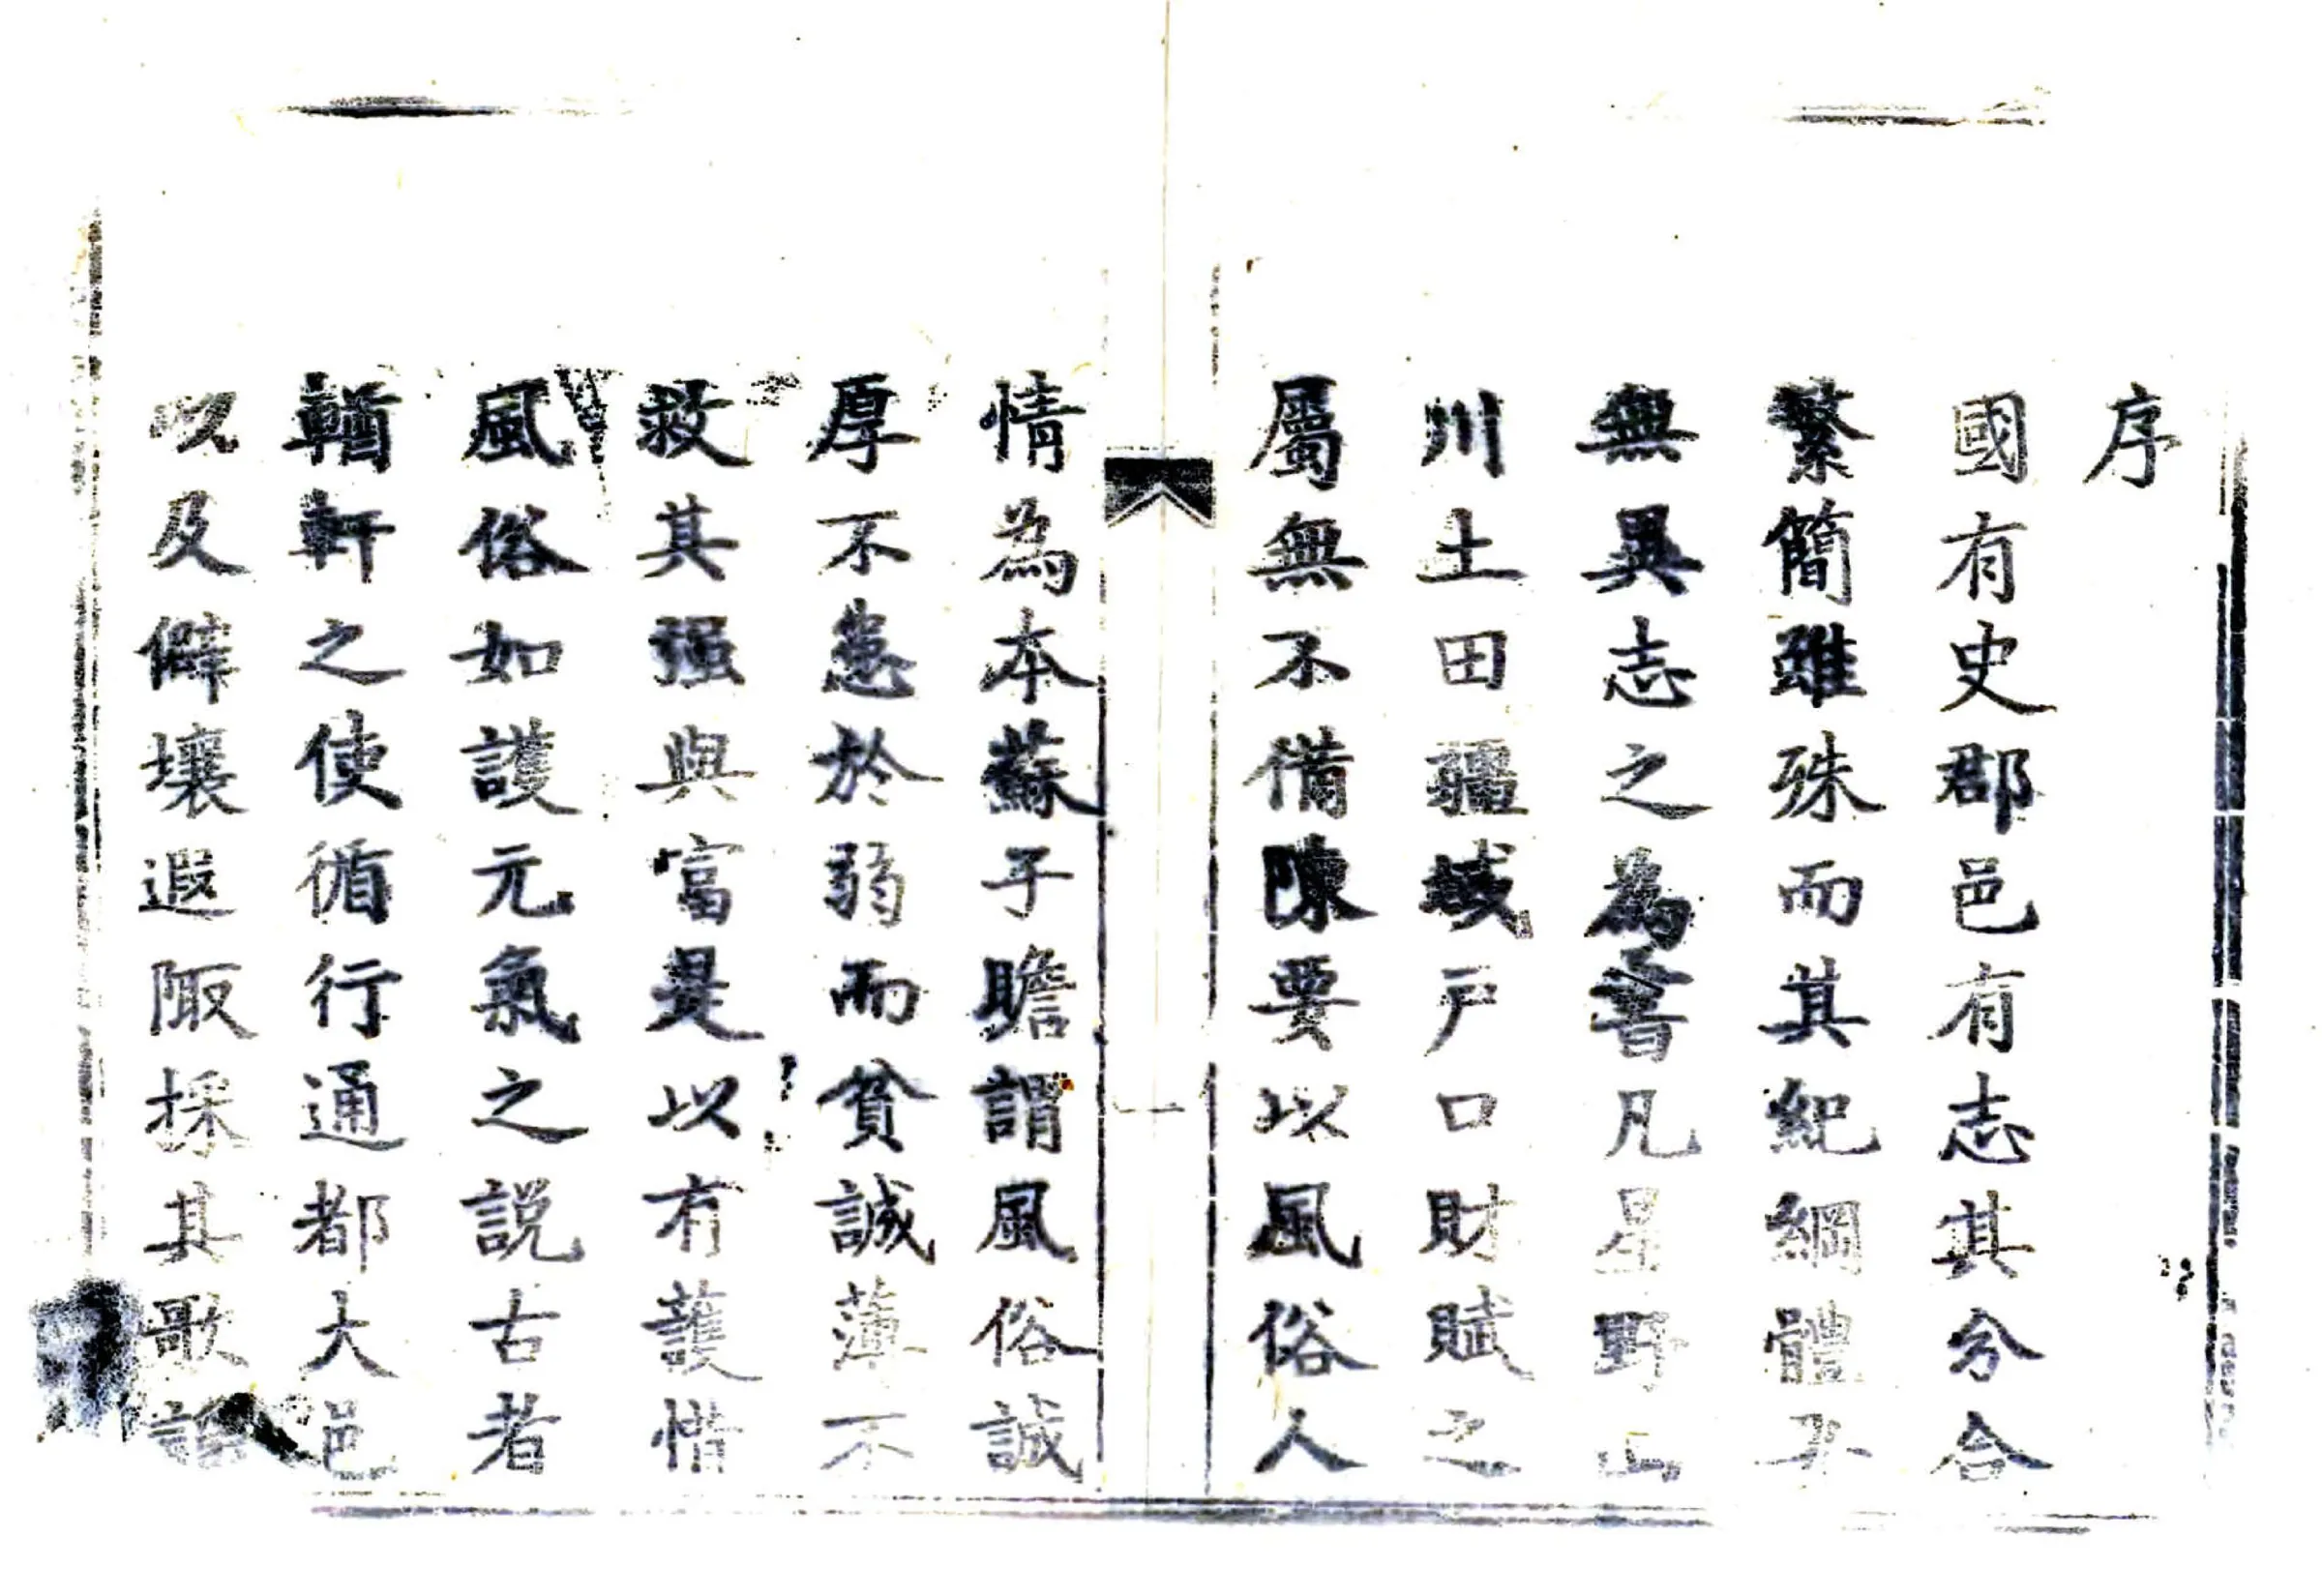 序
國有史郡邑有志其分合
繁簡雖殊而其紀綱體要
無異志之為書凡星野山
川土田疆域戶口財賦之
屬無不備陳要以風俗人
一
情為本蘇子瞻謂風俗誠
厚不患於弱而貧誠薄不
救其强與富是以有護惜
風俗如護元氣之說古者
輶軒之使循行通都大邑
以及僻壤遐陬採其歌謠